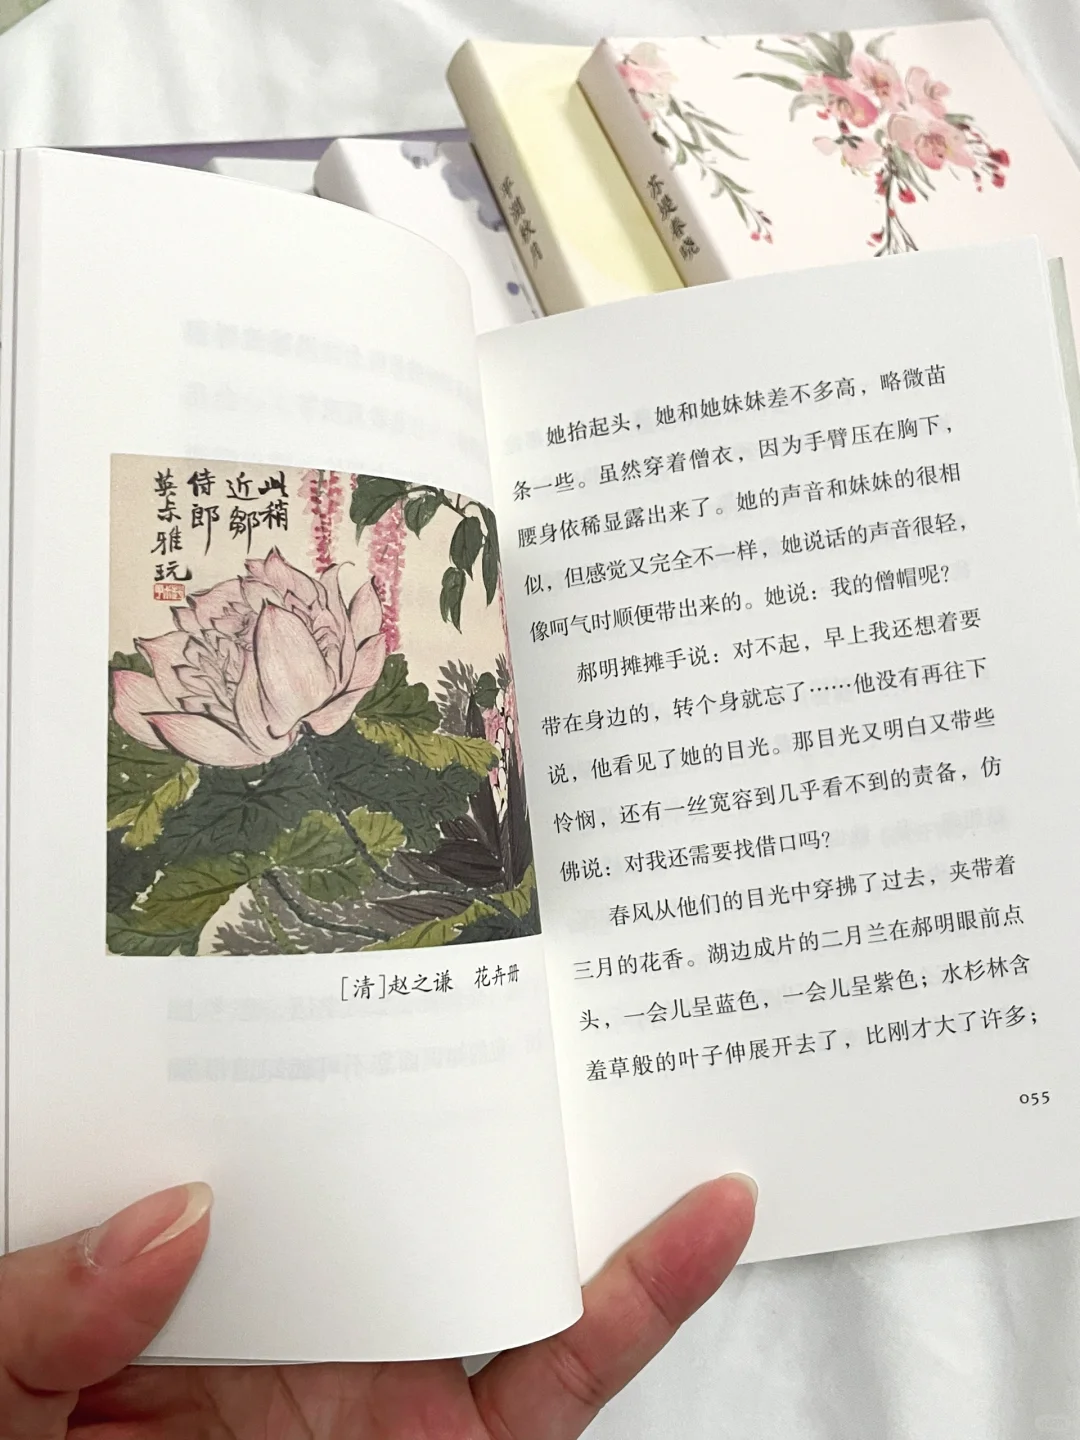 平湖秋月
苏堤春晓
此稍
近邹
侍郎
英未雅
玩
[清]赵之谦 花卉册
她抬起头，她和她妹妹差不多高，略微苗
条一些。虽然穿着僧衣，因为手臂压在胸下，
腰身依稀显露出来了。她的声音和妹妹的很相
似，但感觉又完全不一样，她说话的声音很轻，
像呵气时顺便带出来的。她说：我的僧帽呢？
郝明摊摊手说：对不起，早上我还想着要
带在身边的，转个身就忘了……他没有再往下
说，他看见了她的目光。那目光又明白又带些
怜悯，还有一丝宽容到几乎看不到的责备，仿
佛说：对我还需要找借口吗？
春风从他们的目光中穿拂了过去，夹带着
三月的花香。湖边成片的二月兰在郝明眼前点
头，一会儿呈蓝色，一会儿呈紫色；水杉林含
羞草般的叶子伸展开去了，比刚才大了许多；
055